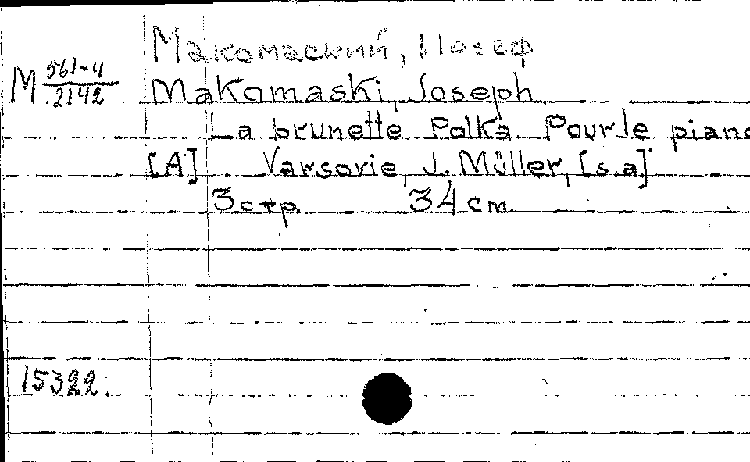 Макомаский, Иозеф
М 561-4
2142
Makomaski, Joseph
La brunette. Polka. Pour le piano
[A]. Varsovie, J. Müller, [s.a]
3 стр. 34 cm.
15322.